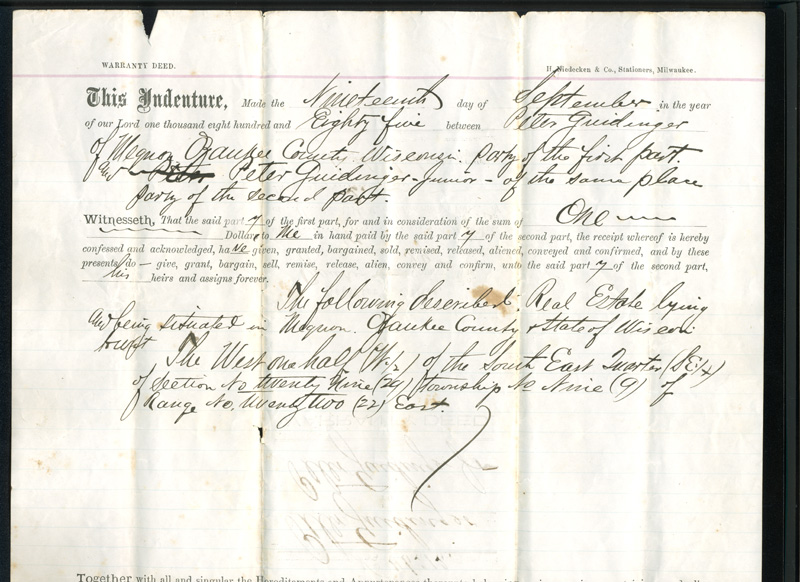 WARRANTY DEED.
H. Niedecken & Co., Stationers, Milwaukee.
This Indenture, Made the Nineteenth day of September in the year
of our Lord one thousand eight hundred and Eighty five between Peter Guidinger
of Mequon Ozaukee County Wisconsin. party of the first part.
and Peter Guidinger Junior - of the same place
party of the second part.
Witnesseth, That the said party of the first part, for and in consideration of the sum of One
Dollar, to Me in hand paid by the said party of the second part, the receipt whereof is hereby
confessed and acknowledged, have given, granted, bargained, sold, remised, released, aliened, conveyed and confirmed, and by these
presents do — give, grant, bargain, sell, remise, release, alien, convey and confirm, unto the said party of the second part,
his heirs and assigns forever.
The following described Real Estate lying
and being situated in Mequon. Ozaukee County & State of Wiscon
to wit
The West one half (W. 1/2) of the South East Quarter (S.E. 1/4)
of Section No twenty Nine (29) Township No Nine (9) of
Range No. twenty two (22) East.
Together with all and singular the Hereditaments and Appurtenances